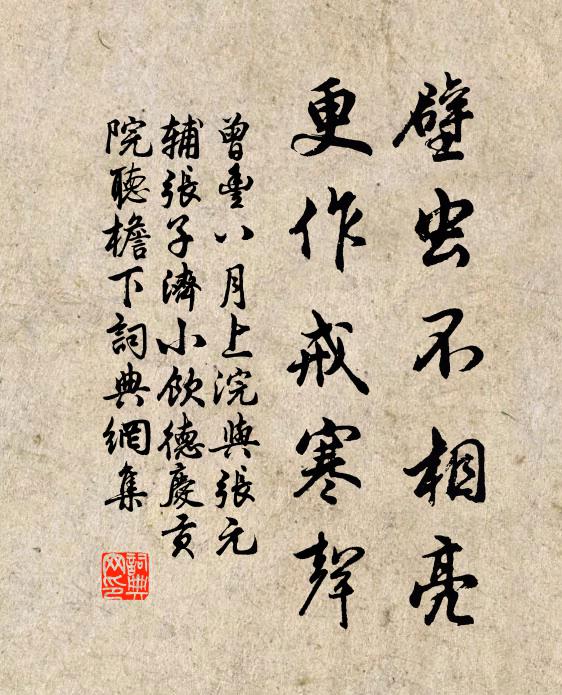 壁虫不相亮
更作戒寒聲
曾豐八月上浣與張元
辅張子濟小飲德慶貢
院聽檐下詞典網集
詞典网印